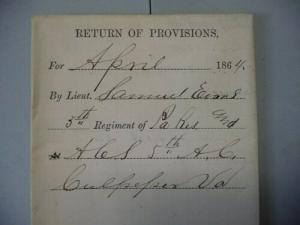 RETURN OF PROVISIONS,
For April 1864.
By Lieut. Samuel
5th Regiment of
A C S 5th A. C.
Culpeper Va